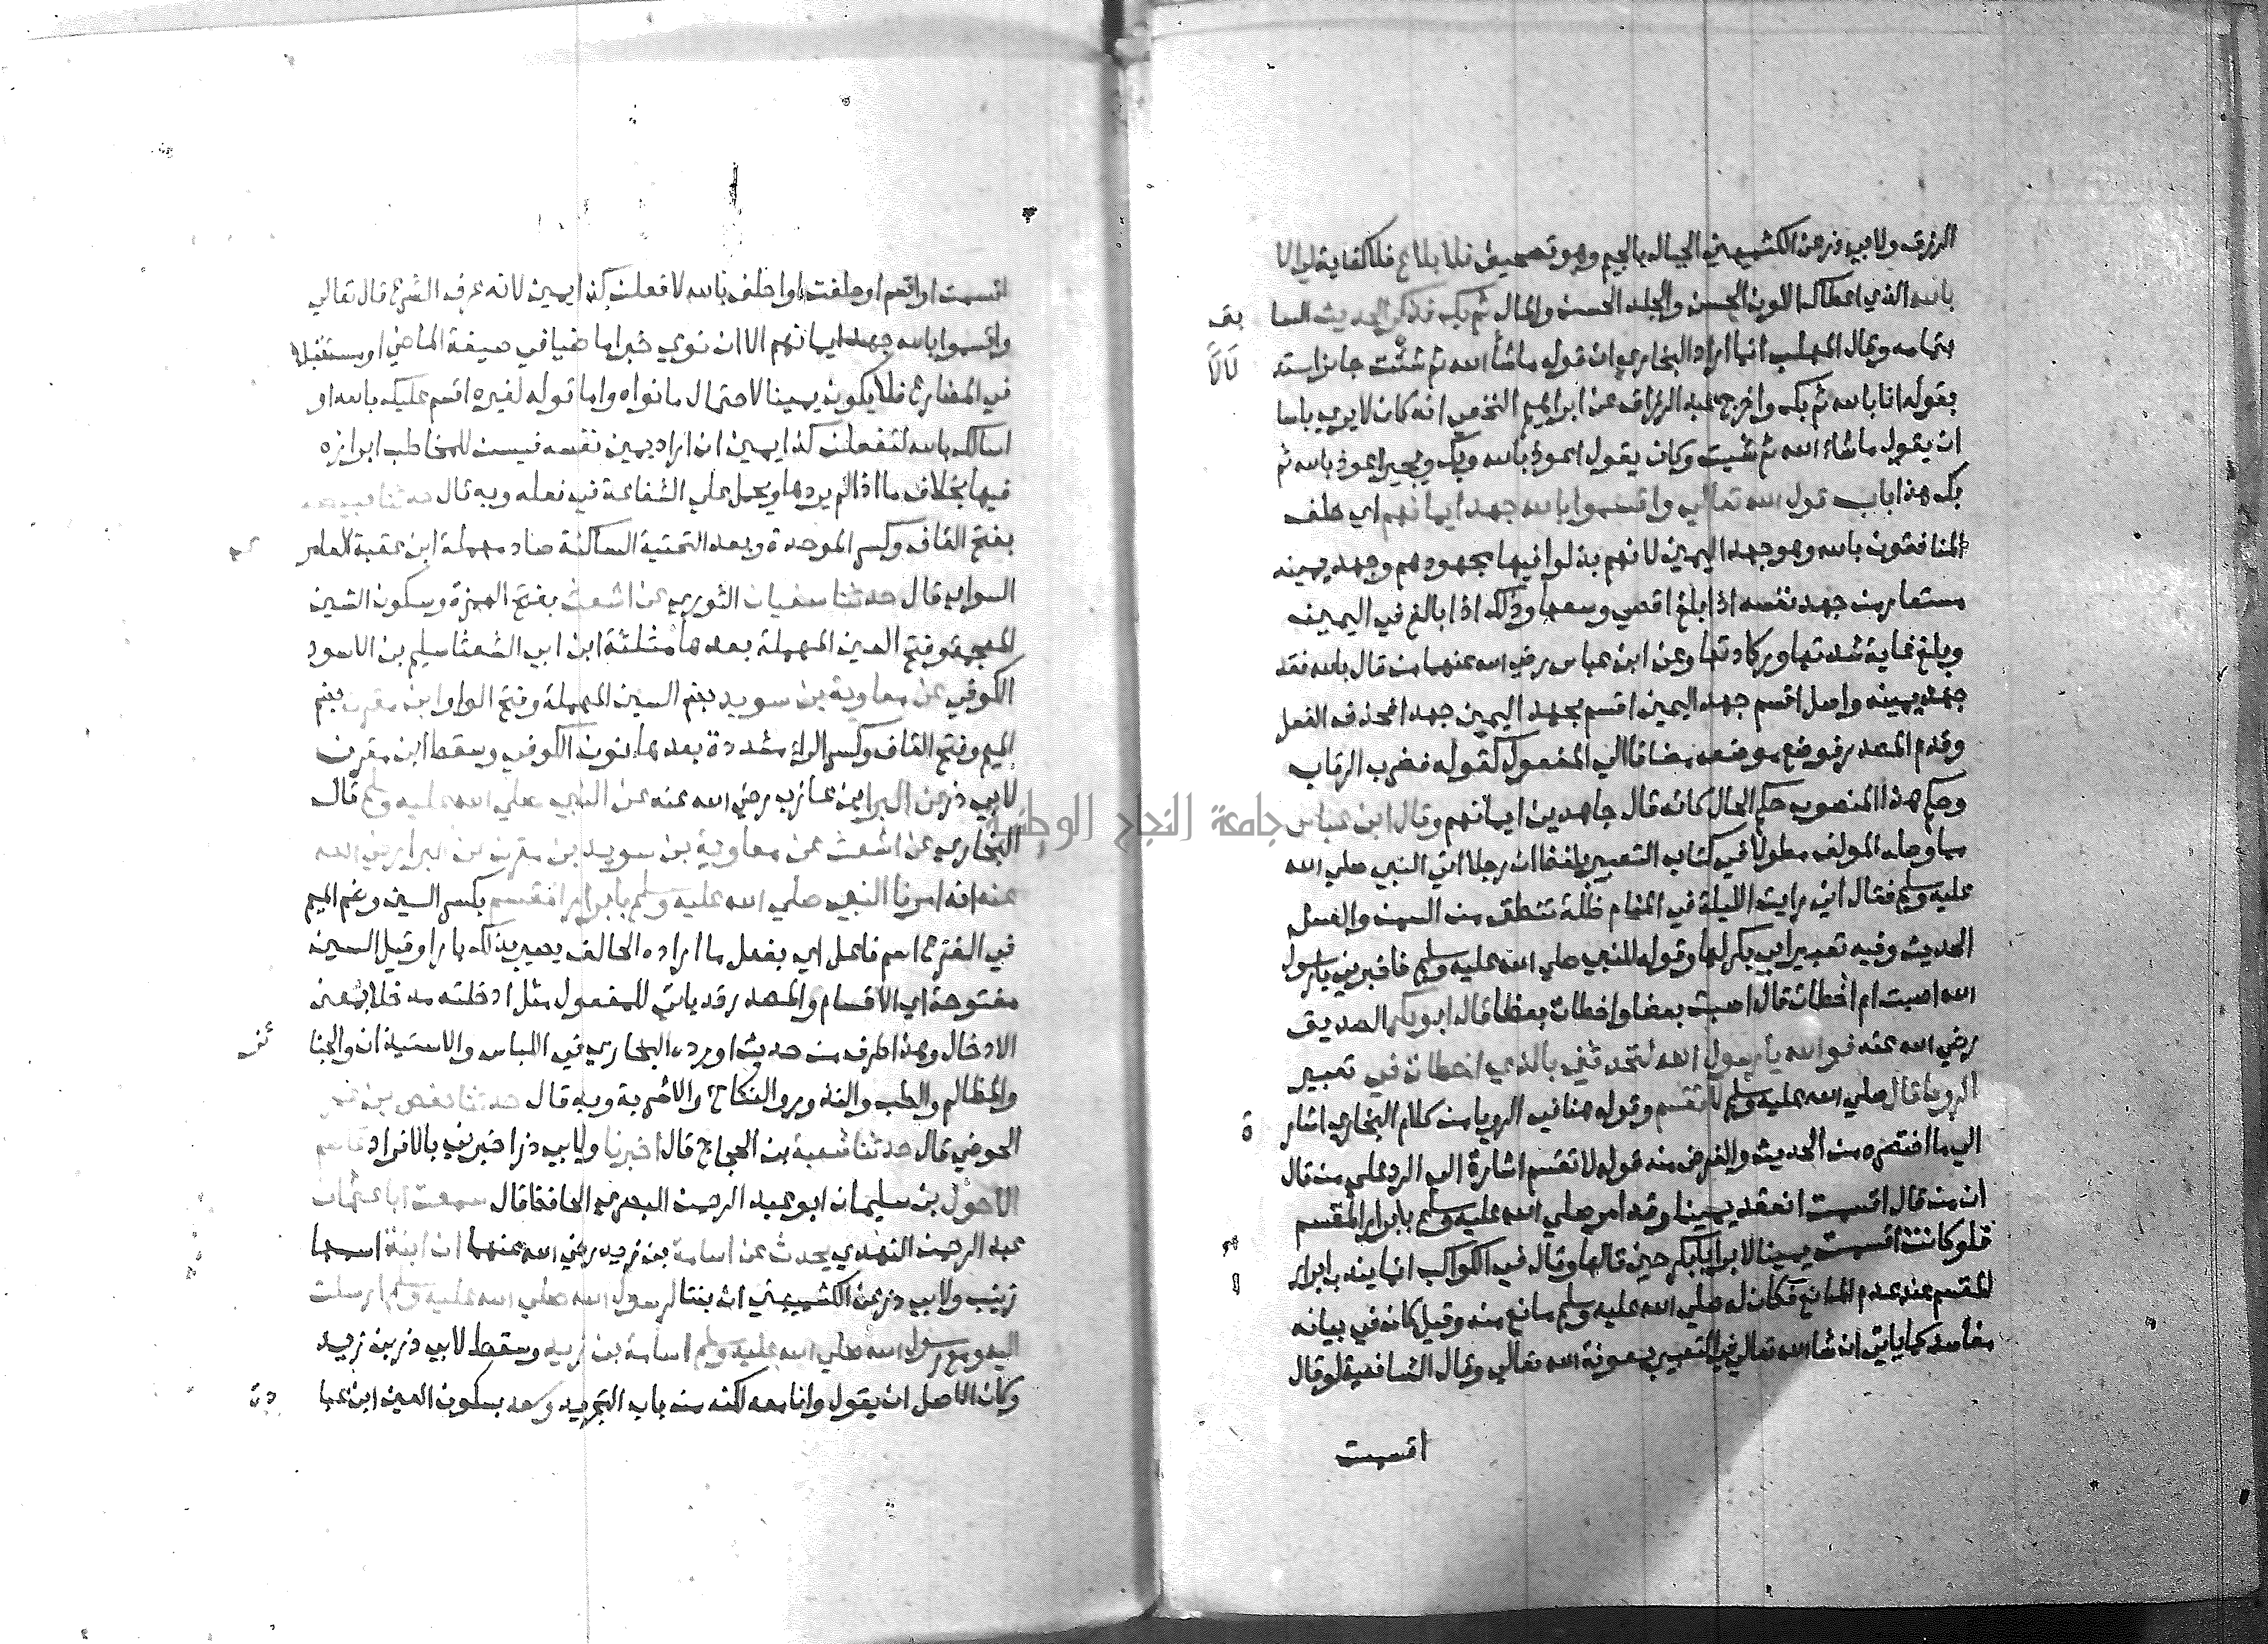 الرزق ولابي ذر عن الكشميهني الجبال بالجيم وهو تصحيف فلا بلاغ فلا كفاية لي الا
بالله الذي اعطاك اللون الحسن والجلد الحسن والمال ثم بك فذكر الحديث السا بق
بتمامه وقال المهلب انما اراد البخاري ان قوله ماشأ الله ثم شئت جايز استد لالا
بقوله انا بالله ثم بك واخرج عبد الرزاق عن ابراهيم النخعي انه كان لا يري باسا
ان يقول ماشاء الله ثم شيت وكان يقول اعوذ بالله وبك ويجيز اعوذ بالله ثم
بك هذا باب قول الله تعالي واقسموا بالله جهد ايمانهم اي حلف
المنافقون بالله وهو جهد اليمين لانهم بذلوا فيها مجهودهم وجهد يمينه
مستعار من جهد نفسه اذا بلغ اقصي وسعها وذلك اذا بالغ في اليمين
وبلغ غاية شدتها ووكادتها وعن ابن عباس رضي الله عنهما من قال بالله فقد
جهد يمينه واصل اقسم جهد اليمين اقسم بجهد اليمين جهدا فحذف الفعل
وقدم المصدر فوضع موضعه مضافا الي المفعول كقوله فضرب الرقاب
وحكم هذا المنصوب حكم الحال كانه قال جاهدين ايمانهم وقال ابن عباس
مما وصله المولف مطولا في كتاب التعبير بلفظ ان رجلا اتي النبي صلي الله
عليه وسلم فقال اني رايت الليلة في المنام ظلة تنطف من السمن والعسل
الحديث وفيه تعبير ابي بكر لها وقوله للنبي صلي الله عليه وسلم فاخبرني يارسول
الله اصبت ام اخطات قال اصبت بعضا واخطات بعضا قال ابو بكر الصديق
رضي الله عنه فوالله يارسول الله لتحدثني بالذي اخطات في تعبير
الرويا قال صلي الله عليه وسلم لا تقسم وقوله هنا في الرويا من كلام البخاري اشار ة
الي ما اختصره من الحديث والغرض منه قوله لا تقسم اشارة الي الرد علي من قال
ان من قال اقسمت انعقد يمينا وقد امر صلي الله عليه وسلم بابرار المقسم
فلو كانت اقسمت يمينا لابر ابابكر حين قالها وقال في الكواكب انما يندب ابرار
المقسم عند عدم المانع فكان له صلي الله عليه وسلم مانع منه وقيل كان في بيانه
مفاسد كما ياتي ان شا الله تعالي في التعبير بمعونة الله تعالي وقال الشافعية لو قال
اقسمت
اقسمت او اقسم او حلفت او احلف بالله لافعلن كذا يمين لانه عرف الشرع قال تعالي
واقسموا بالله جهد ايمانهم الا ان نوي خبرا ماضيا في صيغة الماضي او مستقبلا
في المضارع فلا يكون يمينا لاحتمال مانواه واما قوله لغيره اقسم عليك بالله او
اسالك بالله لتفعلن كذا يمين ان اراد يمين نفسه فيسن للمخاطب ابراره
فيها بخلاف ما اذا لم يردها ويحمل علي الشفاعة في فعله وبه قال حدثنا قبيصة
بفتح القاف وكسر الموحدة وبعد التحتية الساكنة صاد مهملة ابن عقبة العامر ي
السواي قال حدثنا سفيان الثوري عن اشعث بفتح الهمزة وسكون الشين
المعجمة وفتح العين المهملة بعدها مثلثة ابن ابي الشعثا سليم بن الاسود
الكوفي عن معاوية بن سويد بضم السين المهملة وفتح الواو ابن مقرن بضم
الميم وفتح القاف وكسر الراء مشددة بعدها نون الكوفي وسقط ابن مقرن
لابي ذر عن البرا بن عازب رضي الله عنه عن النبي صلي الله عليه وسلم قال
البخاري عن اشعث عن معاوية بن سويد بن مقرن عن البرا رضي الله
عنه انه امرنا النبي صلي الله عليه وسلم بابرار المقسم بكسر السين وضم الميم
في الفرع اسم فاعل اي بفعل ما اراده الحالف يصير بذلك بارا وقيل السين
مفتوحة اي الاقسام والمصدر قد ياتي للمفعول مثل ادخلته مدخلا بمعني
الادخال وهذا طرف من حديث اورده البخاري في اللباس والاستيذان والجنا ئز
والمظالم والطب والنذور والنكاح والاشربة وبه قال حدثنا حفص بن عمر
الحوضي قال حدثنا شعبة بن الحجاج قال اخبرنا ولابي ذر اخبرني بالافراد عاصم
الاحول بن سليمان ابو عبد الرحمن البصري الحافظ قال سمعت ابا عثمان
عبد الرحمن النهدي يحدث عن اسامة بن زيد رضي الله عنهما ان ابنة اسمها
زينب ولابي ذر عن الكشميهني ان بنتا لرسول الله صلي الله عليه وسلم ارسلت
اليه ومع رسول الله صلي الله عليه وسلم اسامة بن زيد وسقط لابي ذر بن زيد
وكان الاصل ان يقول وانا معه لكنه من باب التجريد وسعد بسكون العين ابن عبا دة
جامعة النجاح الوطنية